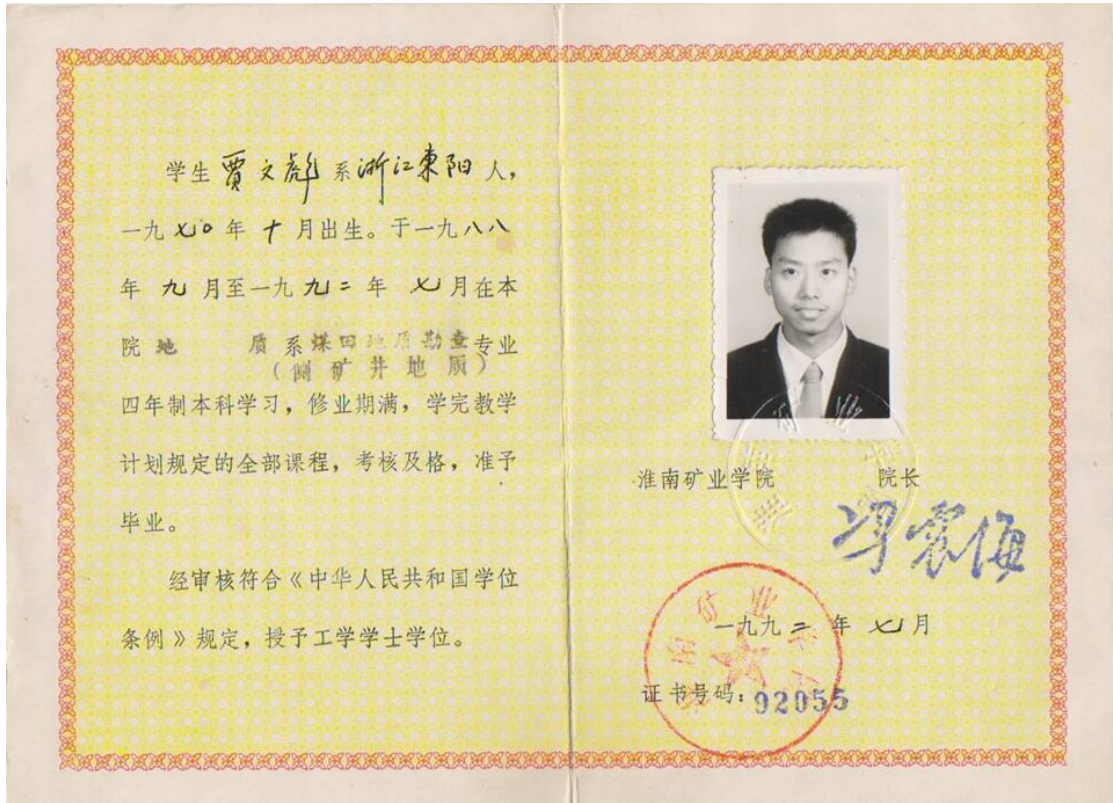 学生 贾文彪 系 浙江東阳 人，
一九七〇年十月出生。于一九八八
年九月至一九九二年七月在本
院地 质系煤田地质勘查专业
（侧矿井地质）
四年制本科学习，修业期满，学完教学
计划规定的全部课程，考核及格，准予
毕业。
经审核符合《中华人民共和国学位
条例》规定，授予工学学士学位。
淮南矿业学院 院长
冯震海
一九九二年七月
证书号码：92055
淮南矿业学院